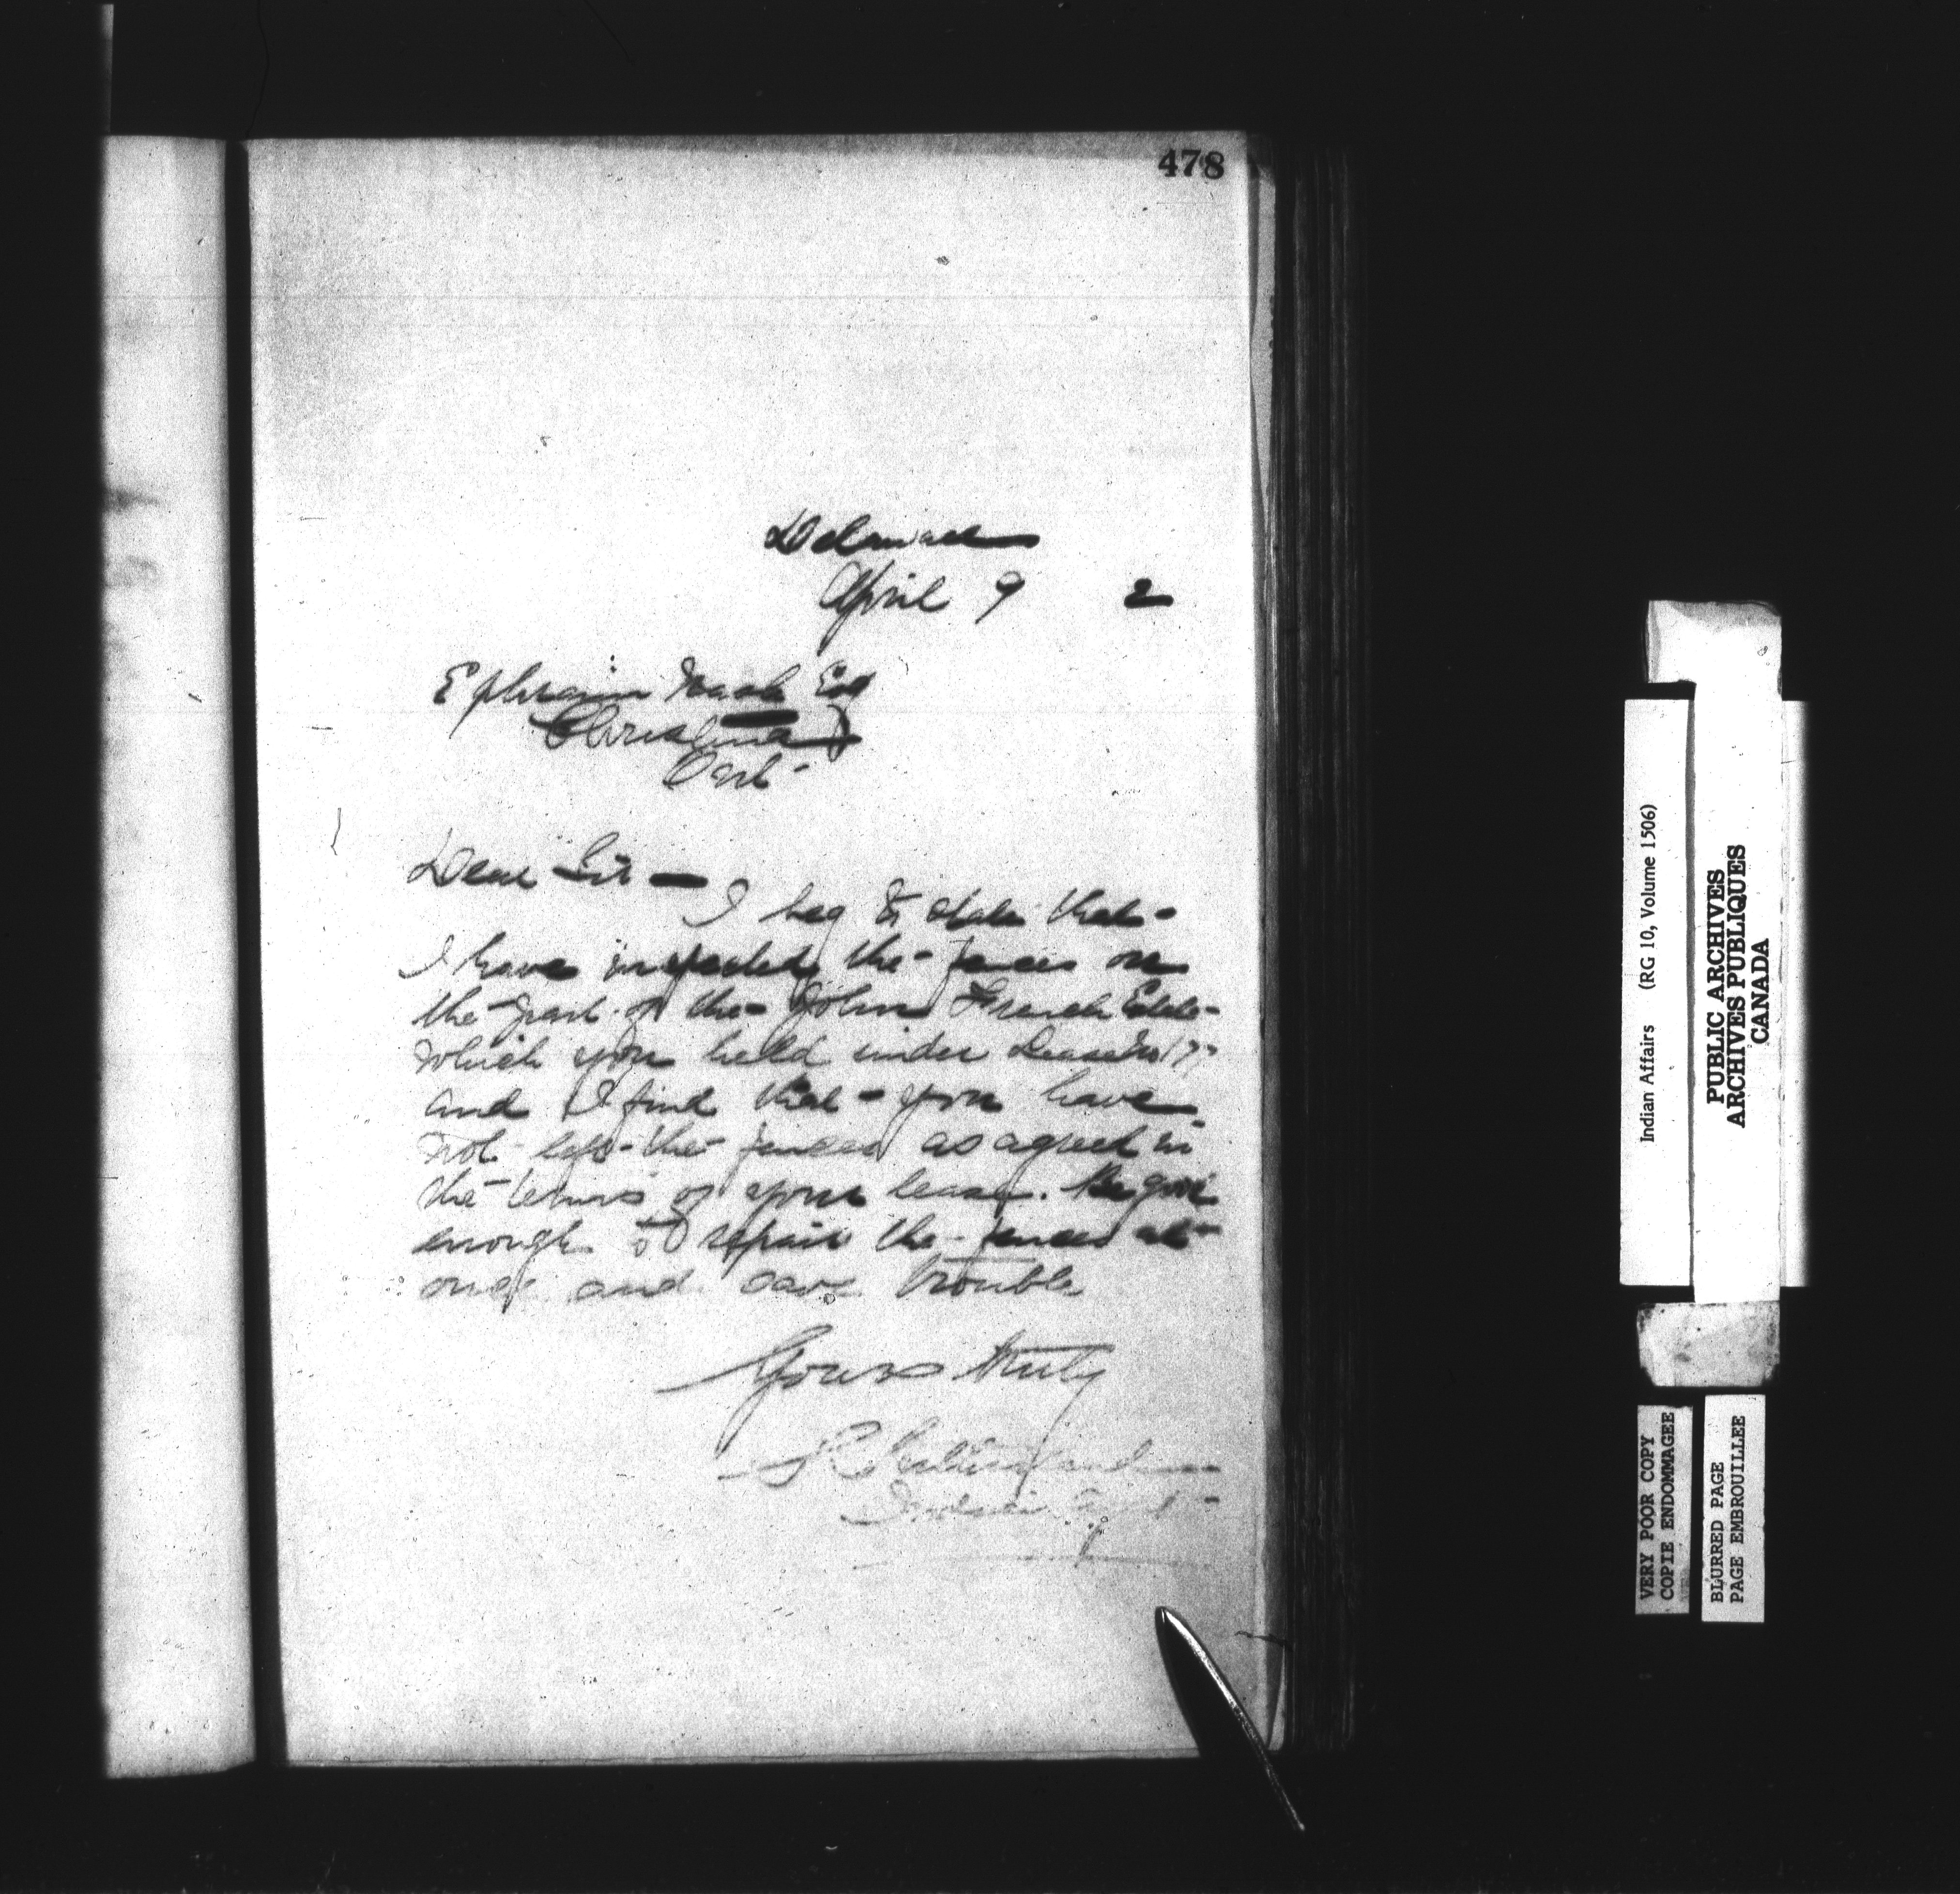 478
Delaware
April 9 2
Ephraim Nash Esq
Christina
Ont
Dear Sir — I beg to state that
I have inspected the fences on
the part of the John French Estate
which you held under Lease No 177
and I find that you have
not left the fences as agreed in
the terms of your lease. Be good
enough to repair the fences at
once and save trouble
Yours truly
Sutherland
Indian Agent
Indian Affairs (RG 10, Volume 1506)
PUBLIC ARCHIVES
ARCHIVES PUBLIQUES
CANADA
VERY POOR COPY
COPIE ENDOMMAGEE
BLURRED PAGE
PAGE EMBROUILLEE